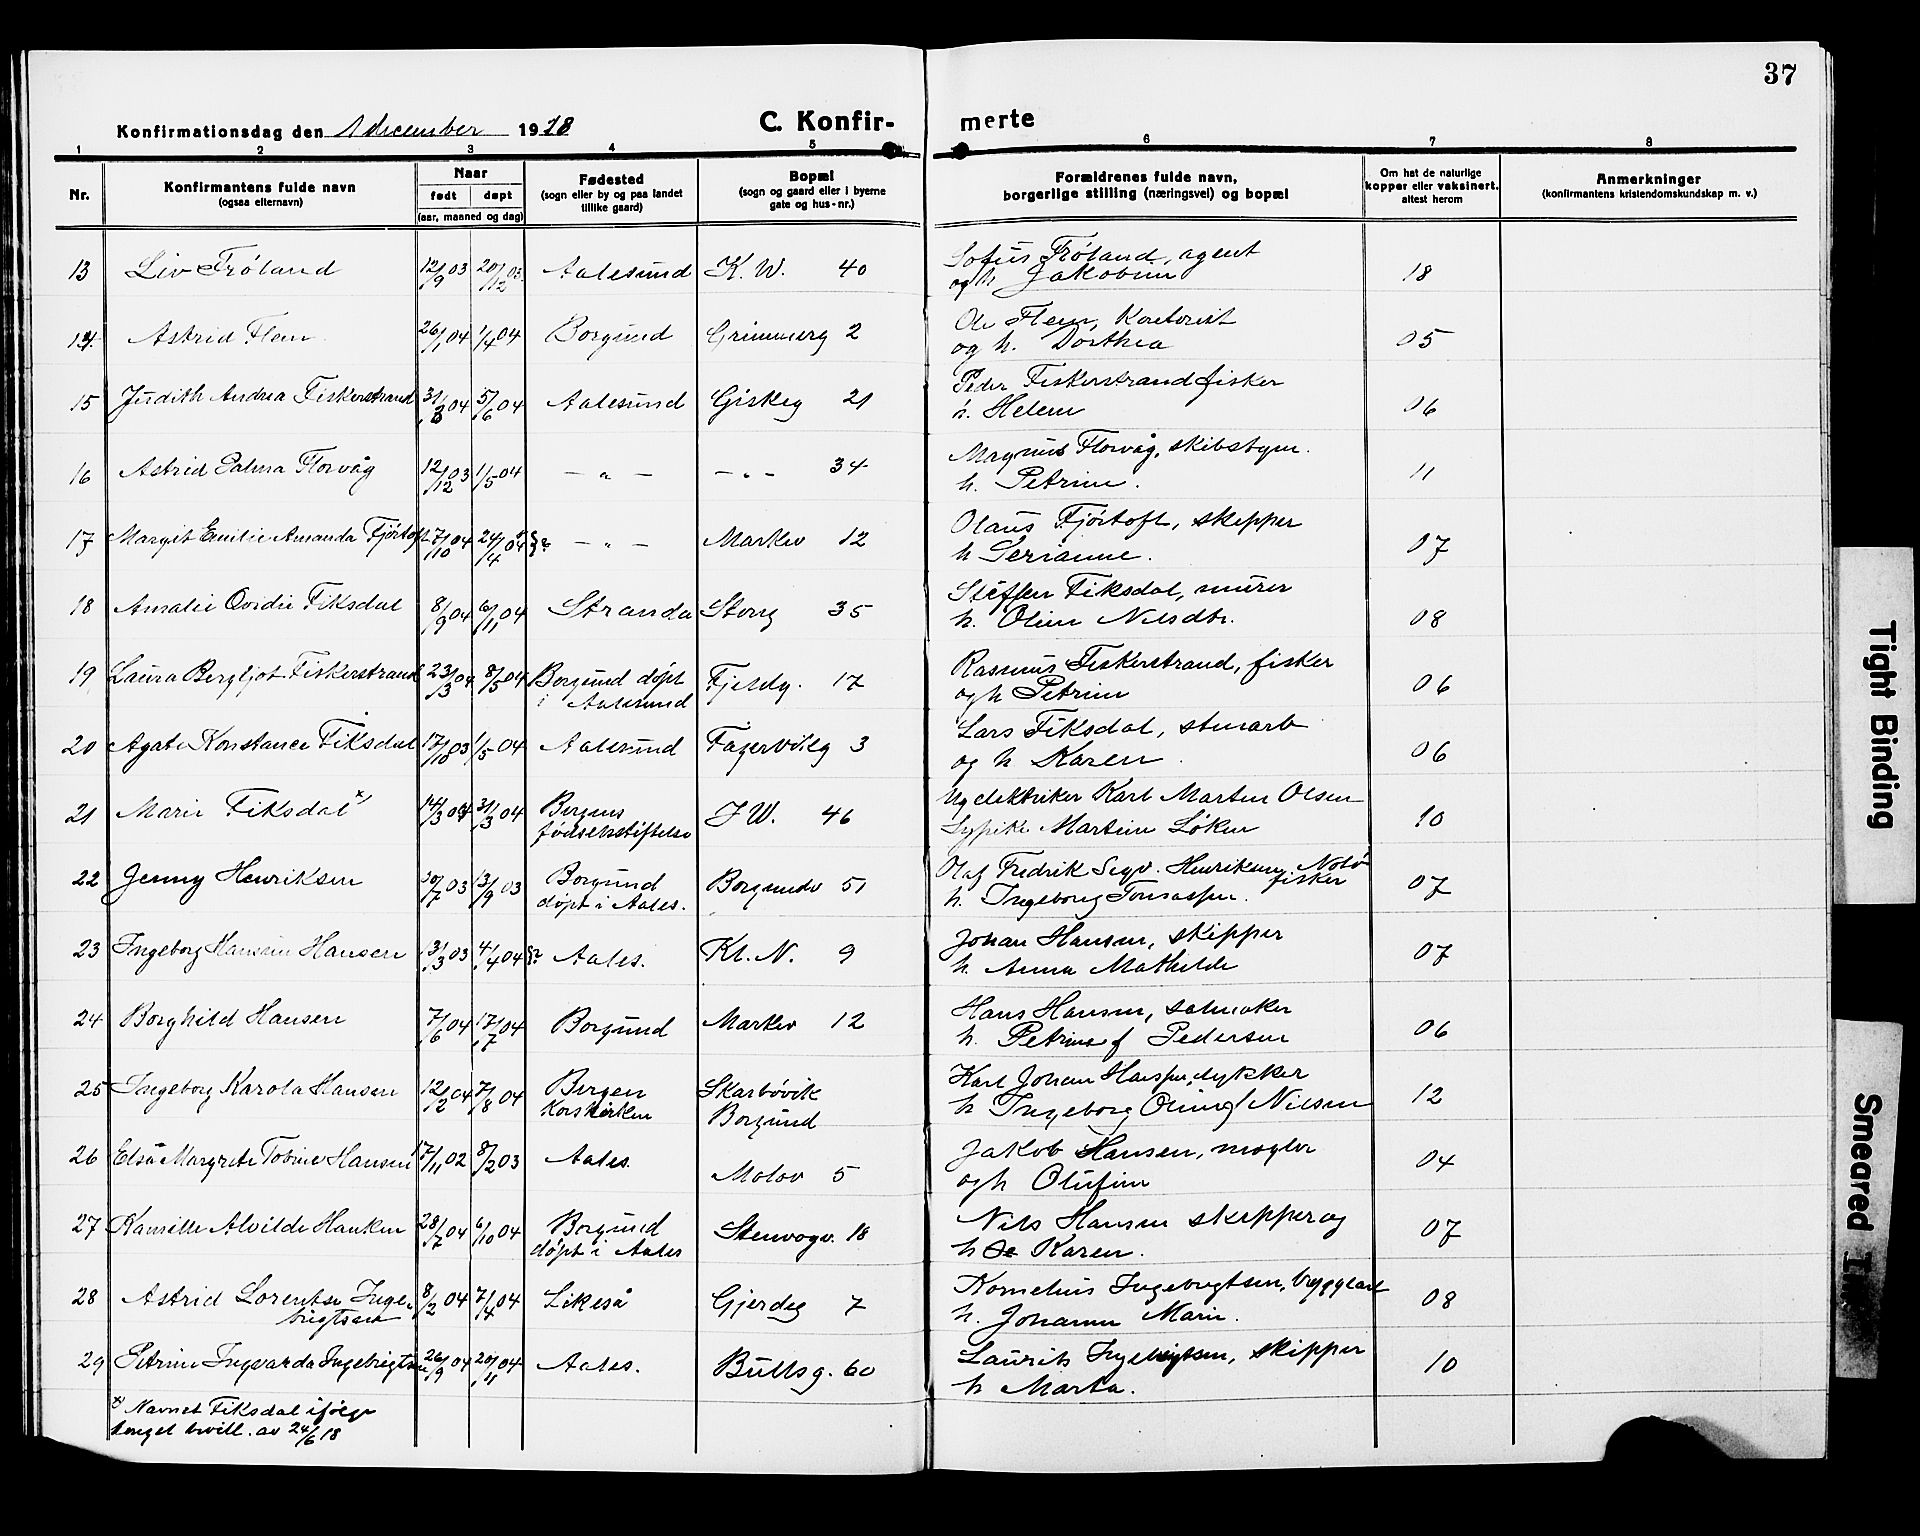 37
Konfirmationsdag den 1 december 1918
C. Konfir-merte
1 2 3 4 5 6 7 8
Nr.
Konfirmantens fulde navn
(ogsaa efternavn)
Naar
født døpt
(aar, maaned og dag)
Fødested
(sogn eller by og paa landet
tillike gaard)
Bopæl
(sogn og gaard eller i byerne
gate og hus-nr.)
Forældrenes fulde navn,
borgerlige stilling (næringsvei) og bopæl
Om hat de naturlige
kopper eller vaksinert.
altest herom
Anmerkninger
(konfirmantens kristendomskundskap m. v.)
13 Liv Frøland 12/9 03 20/12 03. Aalesund K. W. 40 Sofus Frøland, agent 18
og h Jakobine
14. Astrid Flem 26/1 04 1/4 04 Borgund Grimmerg 2 Ole Flem, Kontorist 05
og h. Dorthea
15 Judith Andrea Fiskerstrand 31/3 04 5/6 04 Aalesund Giskeg 21 Peder Fiskerstrand fisker 06
h. Helene
16 Astrid Palma Florvåg 12/12 03 1/5 04 — „ — — „ — 34 Magnus Florvåg, skibsbygm. 11
h. Petrine.
17 Margit Emilie Amanda Fjörtoft 27/10 04 24/4 04 §? — „ — Markev 12 Olaus Fjörtoft, skipper 07
h Serianne.
18 Amalie Ovidie Fiksdal 8/9 04 6/11 04 Stranda Storg 35 Steffen Fiksdal, murer 08
h. Oline Nilsdtr.
19 Laura Bergljot Fiskerstrand 23/3 04 8/5 04 Borgund døpt Fjeldg. 17 Rasmus Fiskerstrand, fisker 06
i Aalesund og h Petrine
20 Agate Konstance Fiksdal 17/10 03 1/5 04 Aalesund Fagervollg 3 Lars Fiksdal, stenarb 06
og h Karen.
21 Marie Fiksdal x) 14/3 04 31/3 04 Bergens J W. 46 Ug elektriker Karl Martin Olsen 10
fødselsstiftelse Sypike Martine Løken
22 Jenny Henriksen 30/7 03 13/9 03 Borgund Borgundv 51 Olaf Fredrik Segv. Henriksen Nolø 07
døpt i Aales. fisker
h. Ingeborg Tomassen.
23 Ingeborg Hansine Hansen 13/3 03 4/4 04 §? Aales. Kl. N. 9 Johan Hansen, skipper 07
h. Anna Mathilde
24 Borghild Hansen 7/6 04 17/7 04 Borgund Markev 12 Hans Hansen, salmaker 06
h. Petrine f Pedersen
25 Ingeborg Karola Hansen 12/2 04 7/8 04 Bergen Skarbøvik Karl Johan Hansen, dykker 12
Korskirken Borgund h Ingeborg Oline f Nilsen
26 Elsa Margrete Tobine Hansen 17/11 02 8/2 03 Aales. Molov 5 Jakob Hansen, mægler 04
og h Olufine
27 Kamille Alvilde Hanken 28/7 04 6/10 04 Borgund Stenvogv. 18 Nils Hansen skipper og 07
døpt i Aales h Karen.
28 Astrid Lorentse Inge- 8/2 04 7/4 04 Likeså Gjerdeg 7 Kornelius Ingebrigtsen, bryggearb 08
brigtsen h. Johanne Marie.
29 Petrine Ingvarda Ingebrigtsen 26/9 04 20/11 04 Aales. Bullsg. 60 Laurits Ingebrigtsen, skipper 10
h Marta.
x) Navnet Fiksdal ifølge
kongel bevill. av 24/6 18
Tight Binding
Smeared